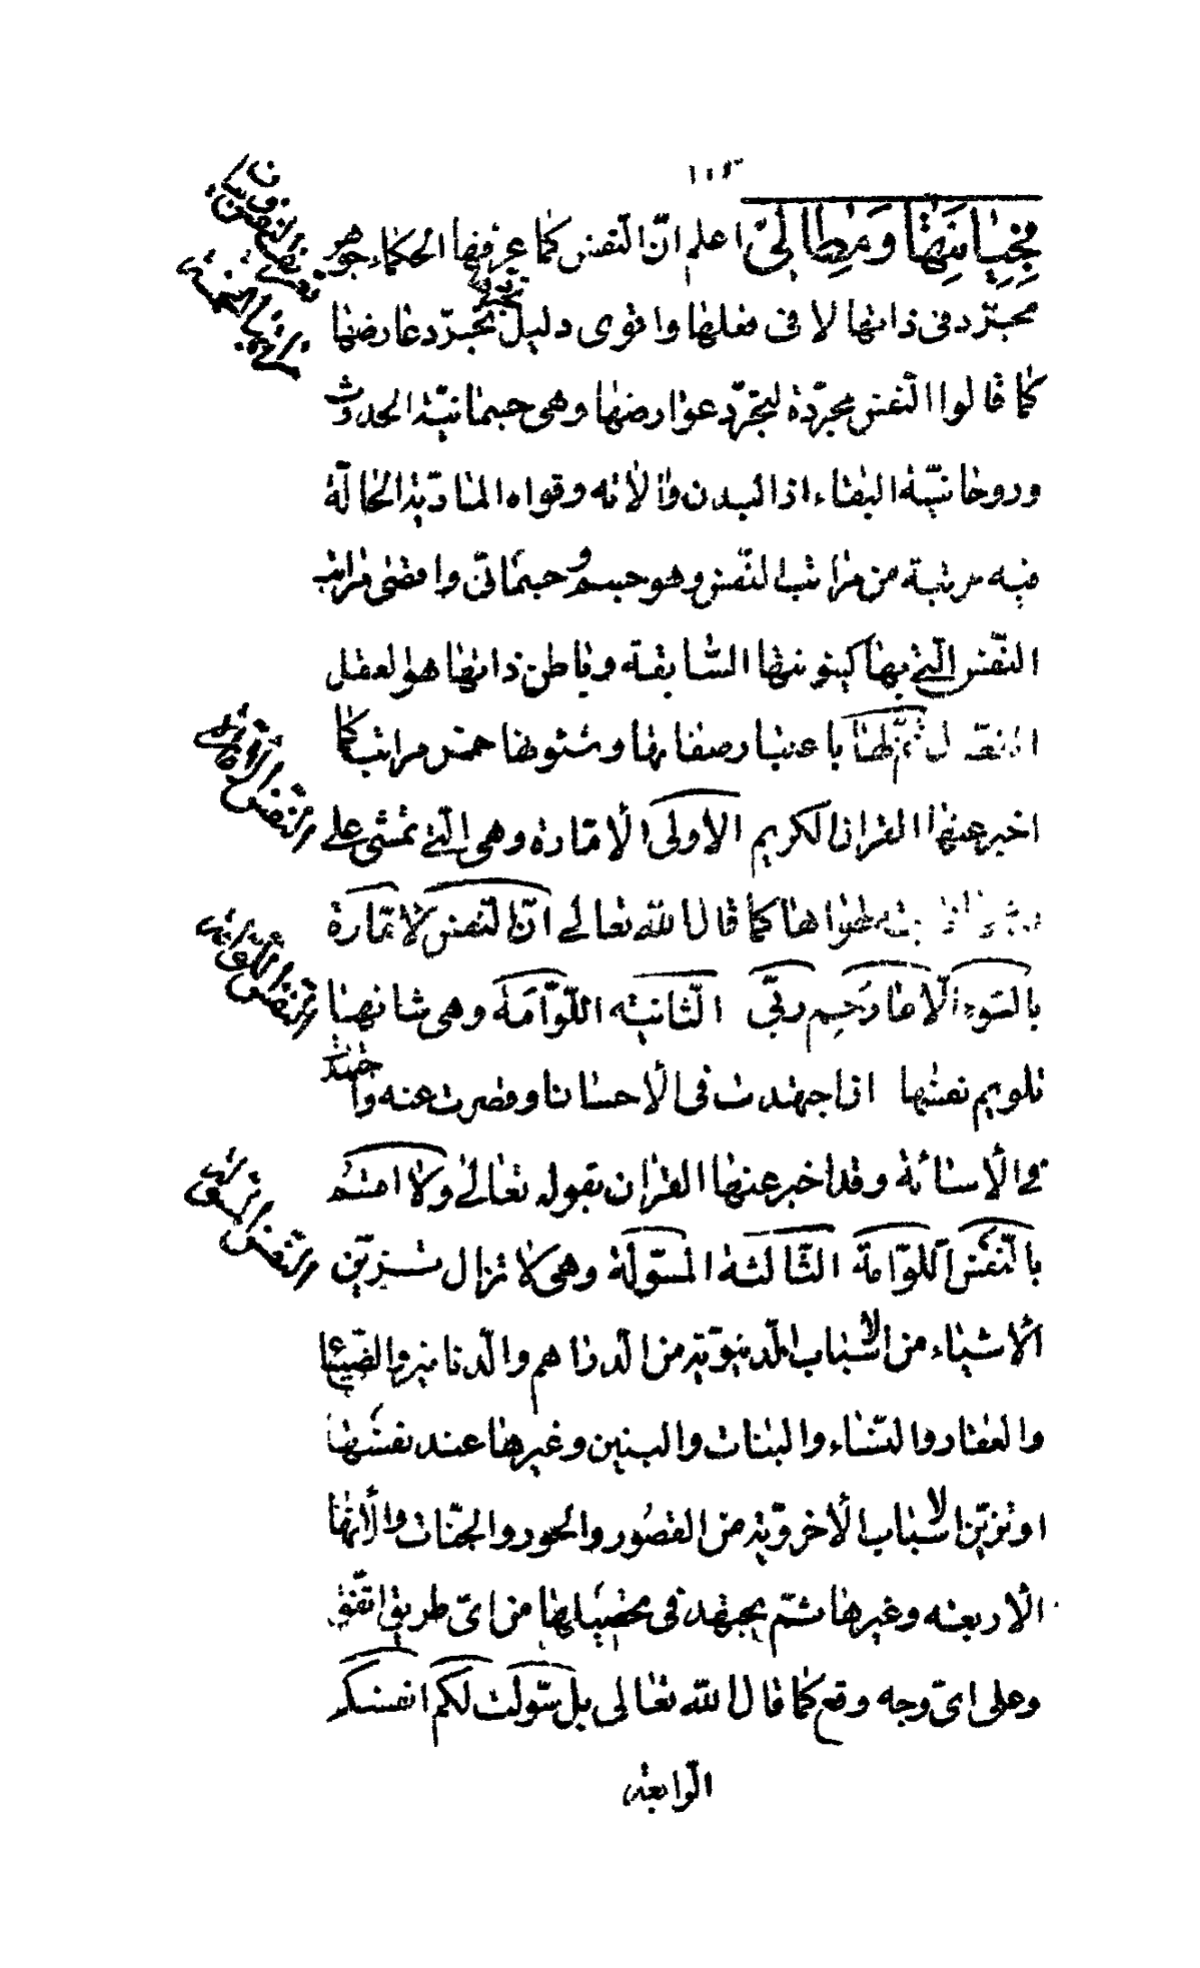 اعلم انّ النّفس كما عرّفها الحكماء جوهر
مجرّد فى ذاتها لا فى فعلها واقوى دليل تجرّدها تجرّد عارضها
كما قالوا النّفس مجرّدة لتجرّد عوارضها وهى جسمانيّة الحدوث
وروحانيّة البقاء اذ البدن والاته وقواه المادّية الحالّة
فيه مرتبة من مراتب النّفس وهو جسم وجسمانىّ واقصى مراتب
النّفس الّتى بها كينونتها السّابقة وباطن ذاتها هو العقل
ثمّ لها باعتبار صفاتها وشئونها خمس مراتب كما
اخبر عنها القران الكريم الاولى الامّارة وهى الّتى تمشى على
هواها كما قال الله تعالى انّ النّفس لامّارة
بالسّوء الّا ما رحم ربّى الثّانية اللّوّامة وهى شانها
تلويم نفسها اذا جهدت فى الاحسان او قصرت عنه واجتهدت
فى الاسائة وقد اخبر عنها القران بقوله تعالى ولا اقسم
بالنّفس اللّوّامة الثّالثة المسوّلة وهى لا تزال تزيّن
الاشياء من الاسباب الدّنيويّة من الدّراهم والدّنانير والضّياع
والعقار والنّساء والبنات والبنين وغيرها عند نفسها
او تزيّن الاسباب الاخرويّة من القصور والحور والجنّات والانهار
الاربعة وغيرها ثمّ يجتهد فى تحصيلها من اىّ طريق اتّفق
وعلى اىّ وجه وقع كما قال الله تعالى بل سوّلت لكم انفسكم
الرّابعة
النّفس الامّارة
النّفس اللّوّامة
النّفس المسوّلة